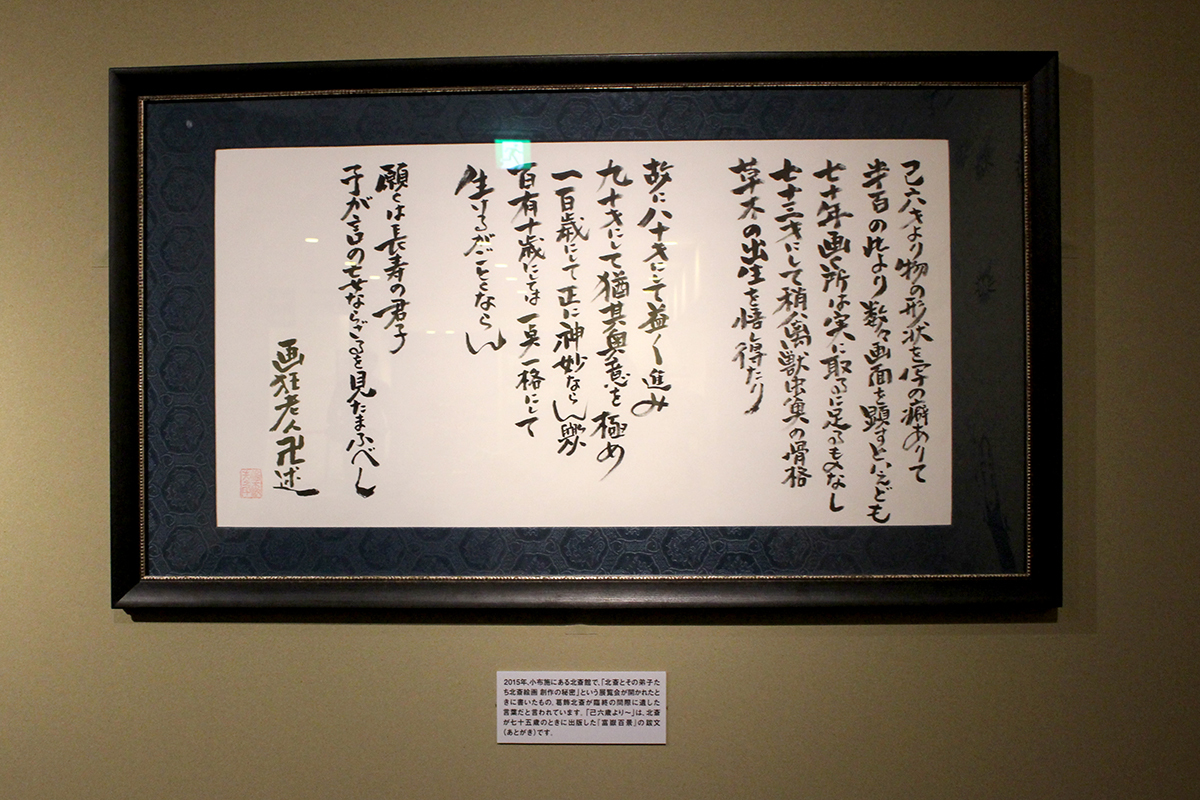 己六才より物の形状を写の癖ありて
半百の此より数々画面を顕すといえども
七十年画く所は実に取るに足るものなし
七十三才にして稍禽獣虫魚の骨格
草木の出生を悟し得たり
故に八十才にして益々進み
九十才にして猶其奥意を極め
一百歳にして正に神妙ならん歟
百有十歳にしては一点一格にして
生けるがごとくならん
願くは長寿の君子
予が言の妄ならざるを見たまふべし
画狂老人卍述
2015年、小布施にある北斎館で、「北斎とその弟子た
ち北斎絵画 創作の秘密」という展覧会が開かれたと
きに書いたもの。葛飾北斎が臨終の間際に遺した
言葉だと言われています。「己六歳より〜」は、北斎
が七十五歳のときに出版した「富嶽百景」の跋文
(あとがき)です。